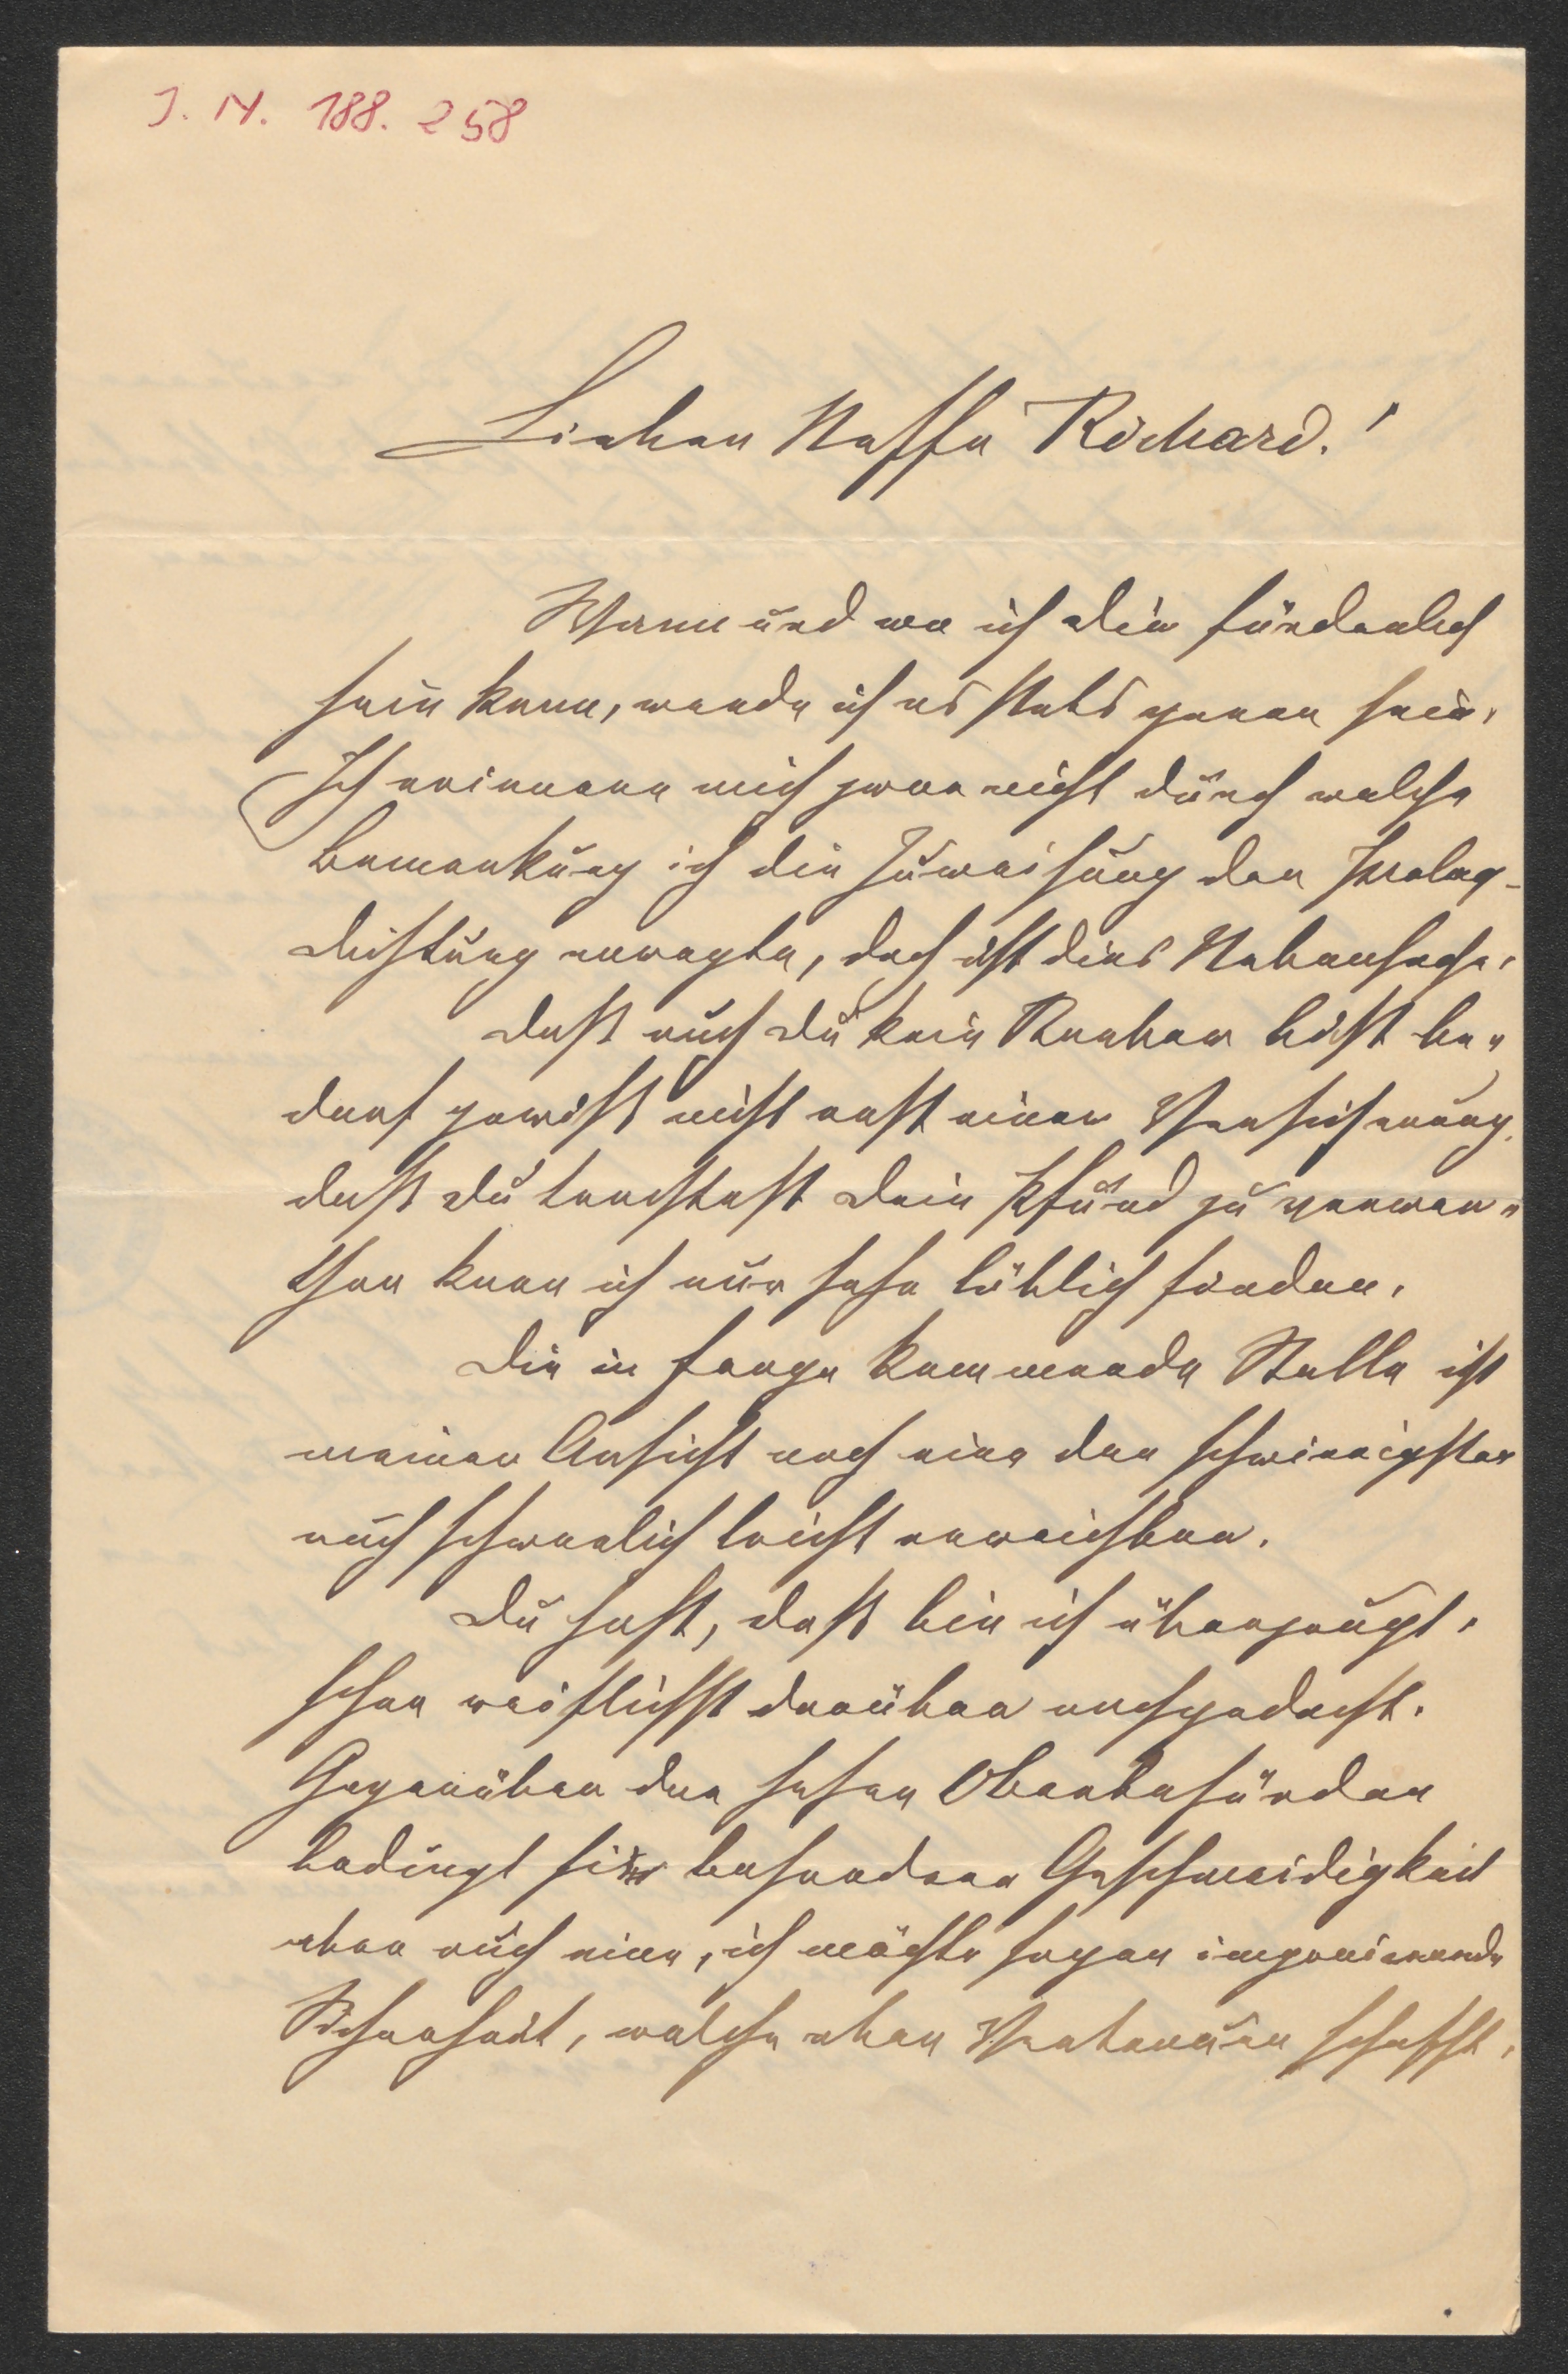 J. N. 188.258
Lieber Neffe Richard!
Wann und wo ich dir förderlich
sein kann, werde ich es stets gerne sein,
Ich erinnere mich zwar nicht durch welche
Bemerkung ich die Zuweisung der Prolog-
dichtung anregte, doch ist dies Nebensache,
daß auch du kein Streber bist be„
darf gewiß nicht erst einer Versicherung,
daß du trachtest dein Pfund zu verwer„
then kann ich nur sehr löblich finden.
Die in Frage kommende Stelle ist
meiner Ansicht nach eine der schwierigsten
auch schwerlich leicht erreichbar.
Du hast, daß bin ich überzeugt,
schon reiflichst darüber nachgedacht.
Gegenüber den hohen Oberbehörden
bedingt sie besondere Geschmeidigkeit
aber auch eine, ich möchte sagen imponierende
Sicherheit, welche eben Vertrauen schafft,